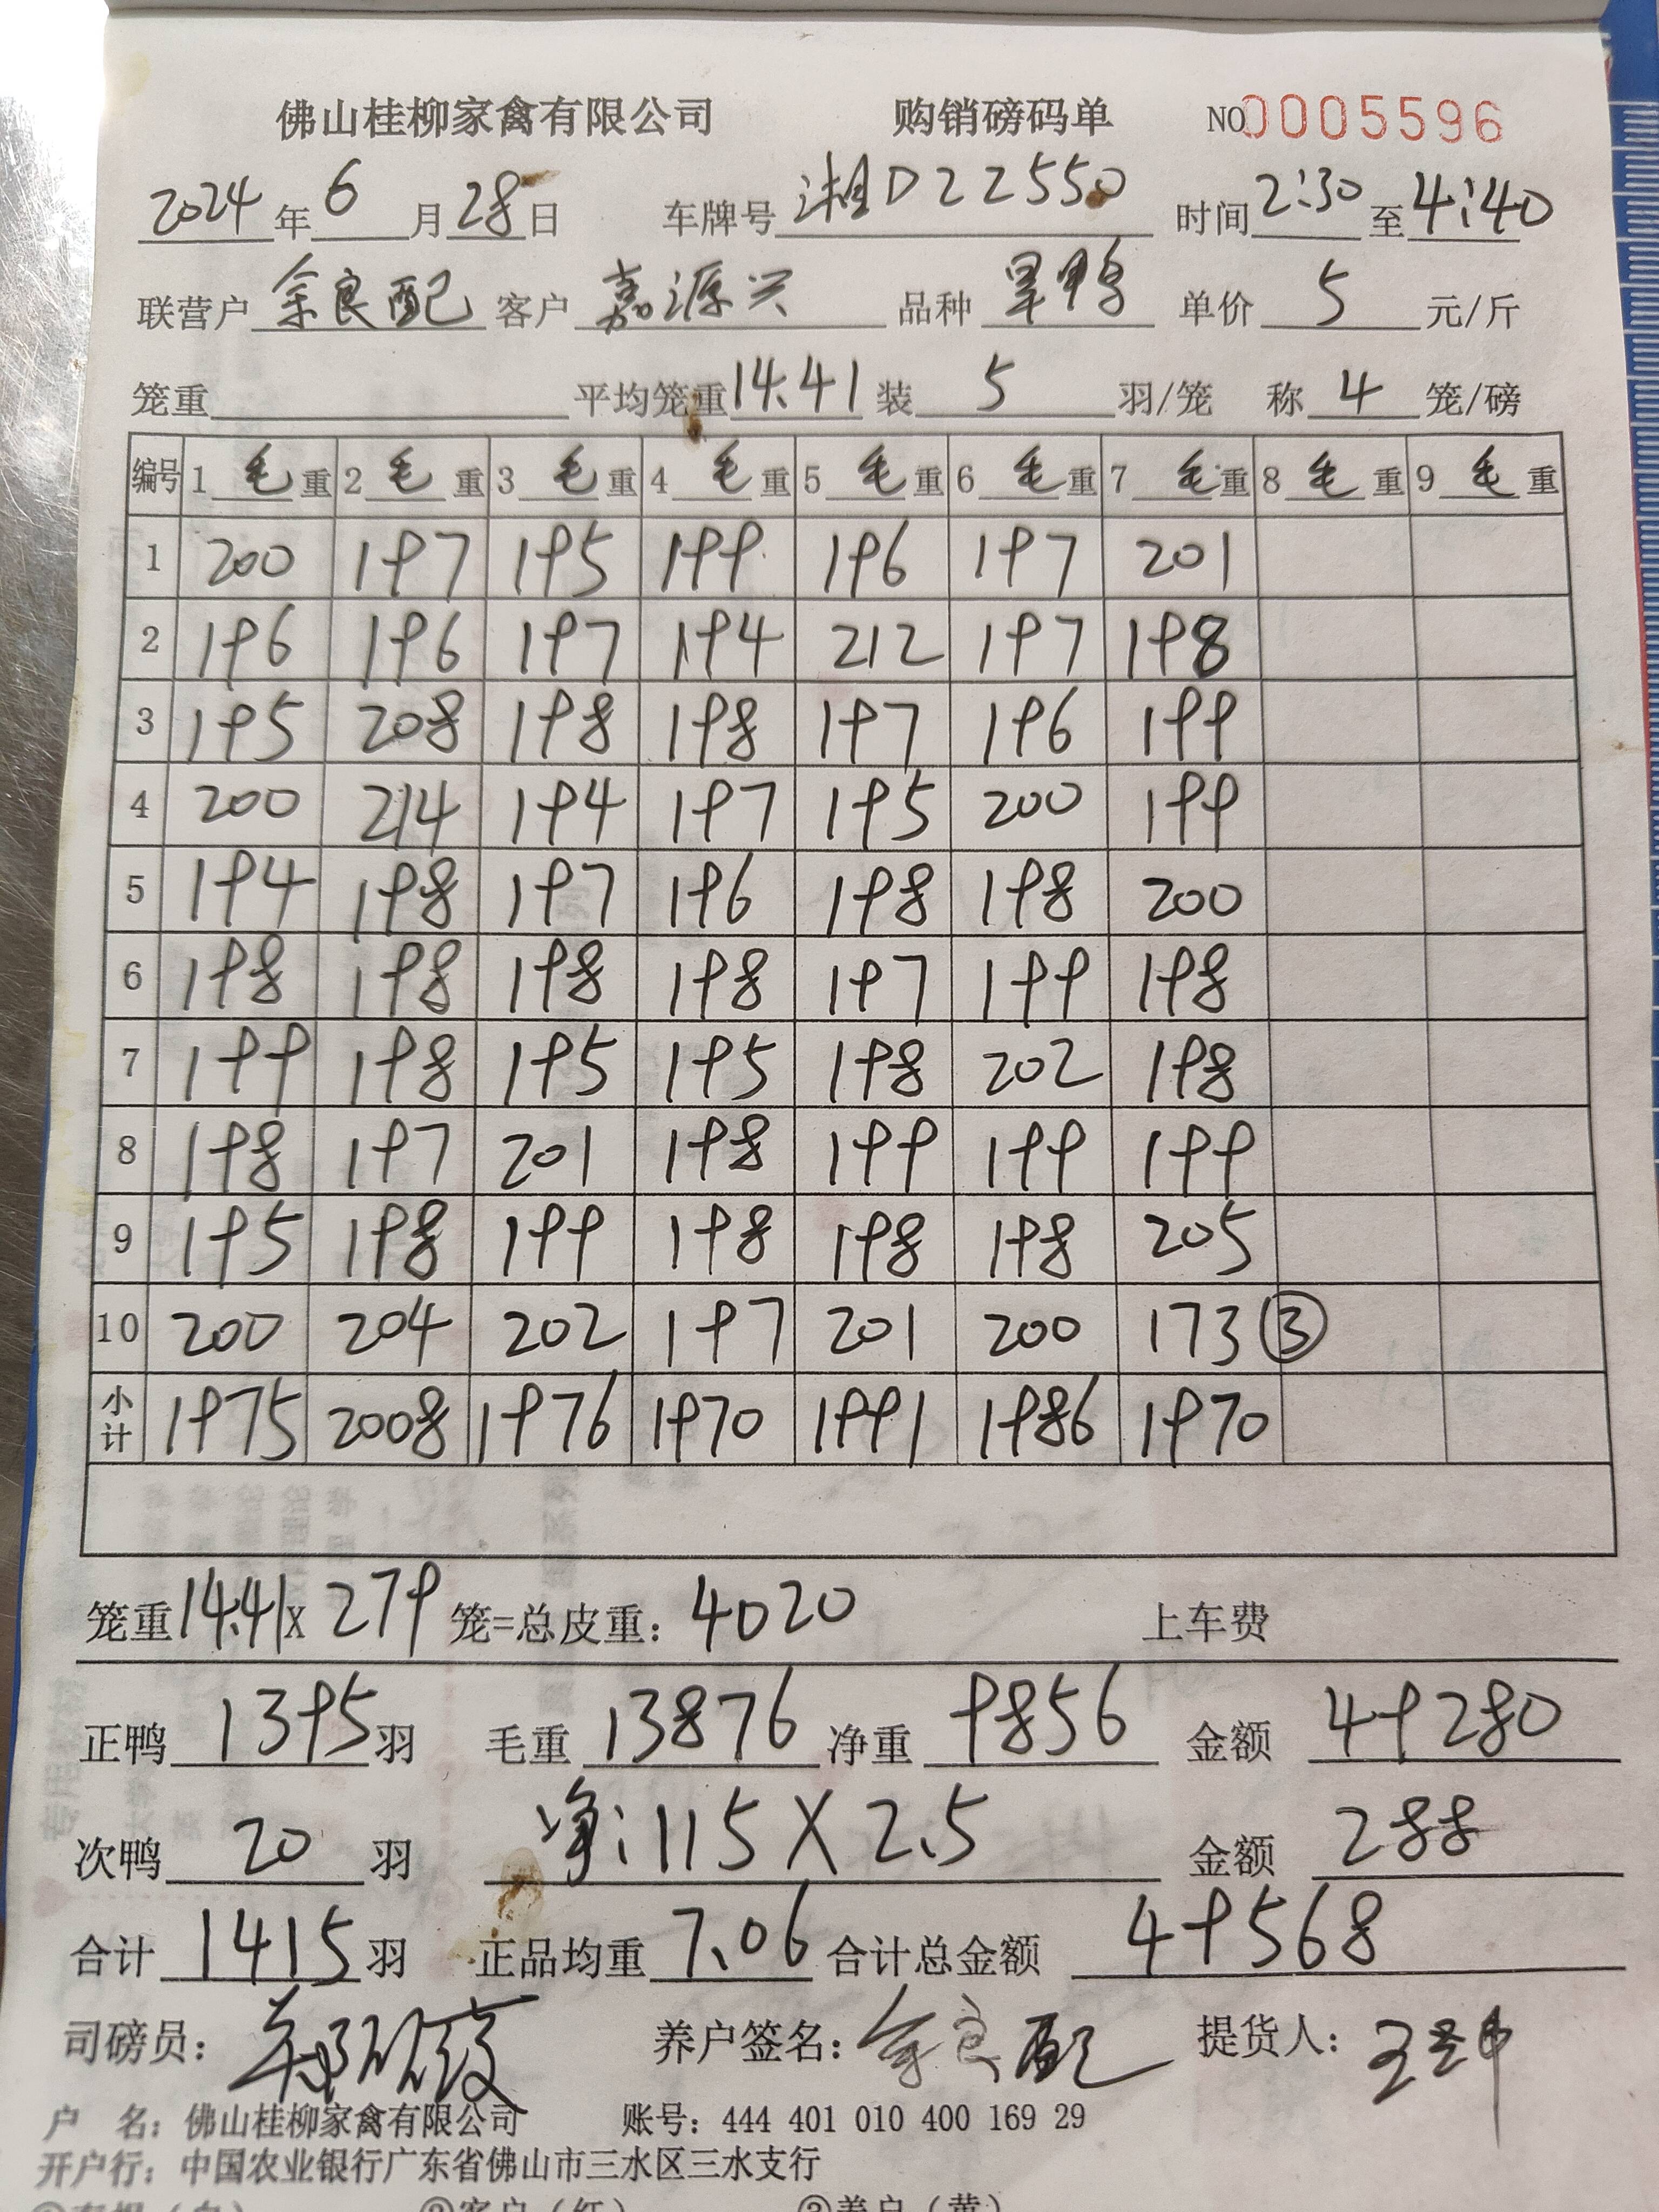 佛山桂柳家禽有限公司 购销磅码单 NO0005596
2024年6月28日 车牌号湘D22550 时间2:30至4:40
联营户余良配 客户嘉源兴 品种旱鸭 单价5元/斤
笼重 平均笼重14.41 装5羽/笼 称4笼/磅
编号 1毛重 2毛重 3毛重 4毛重 5毛重 6毛重 7毛重 8毛重 9毛重
1 200 197 195 199 196 197 201
2 196 196 197 194 212 197 198
3 195 208 198 198 197 196 199
4 200 214 194 197 195 200 199
5 194 198 197 196 198 198 200
6 198 198 198 198 197 199 198
7 199 198 195 195 198 202 198
8 198 197 201 198 199 199 199
9 195 198 199 198 198 198 205
10 200 204 202 197 201 200 173 ③
小计 1975 2008 1976 1970 1991 1986 1970
笼重14.41x279笼=总皮重：4020 上车费
正鸭1395羽 毛重13876 净重9856 金额49280
次鸭20羽 净:115X2.5 金额288
合计1415羽 正品均重7.06 合计总金额49568
司磅员： 养户签名：余良配 提货人：
户 名：佛山桂柳家禽有限公司 账号：444 401 010 400 169 29
开户行：中国农业银行广东省佛山市三水区三水支行
②客户（红） ③养户（黄）